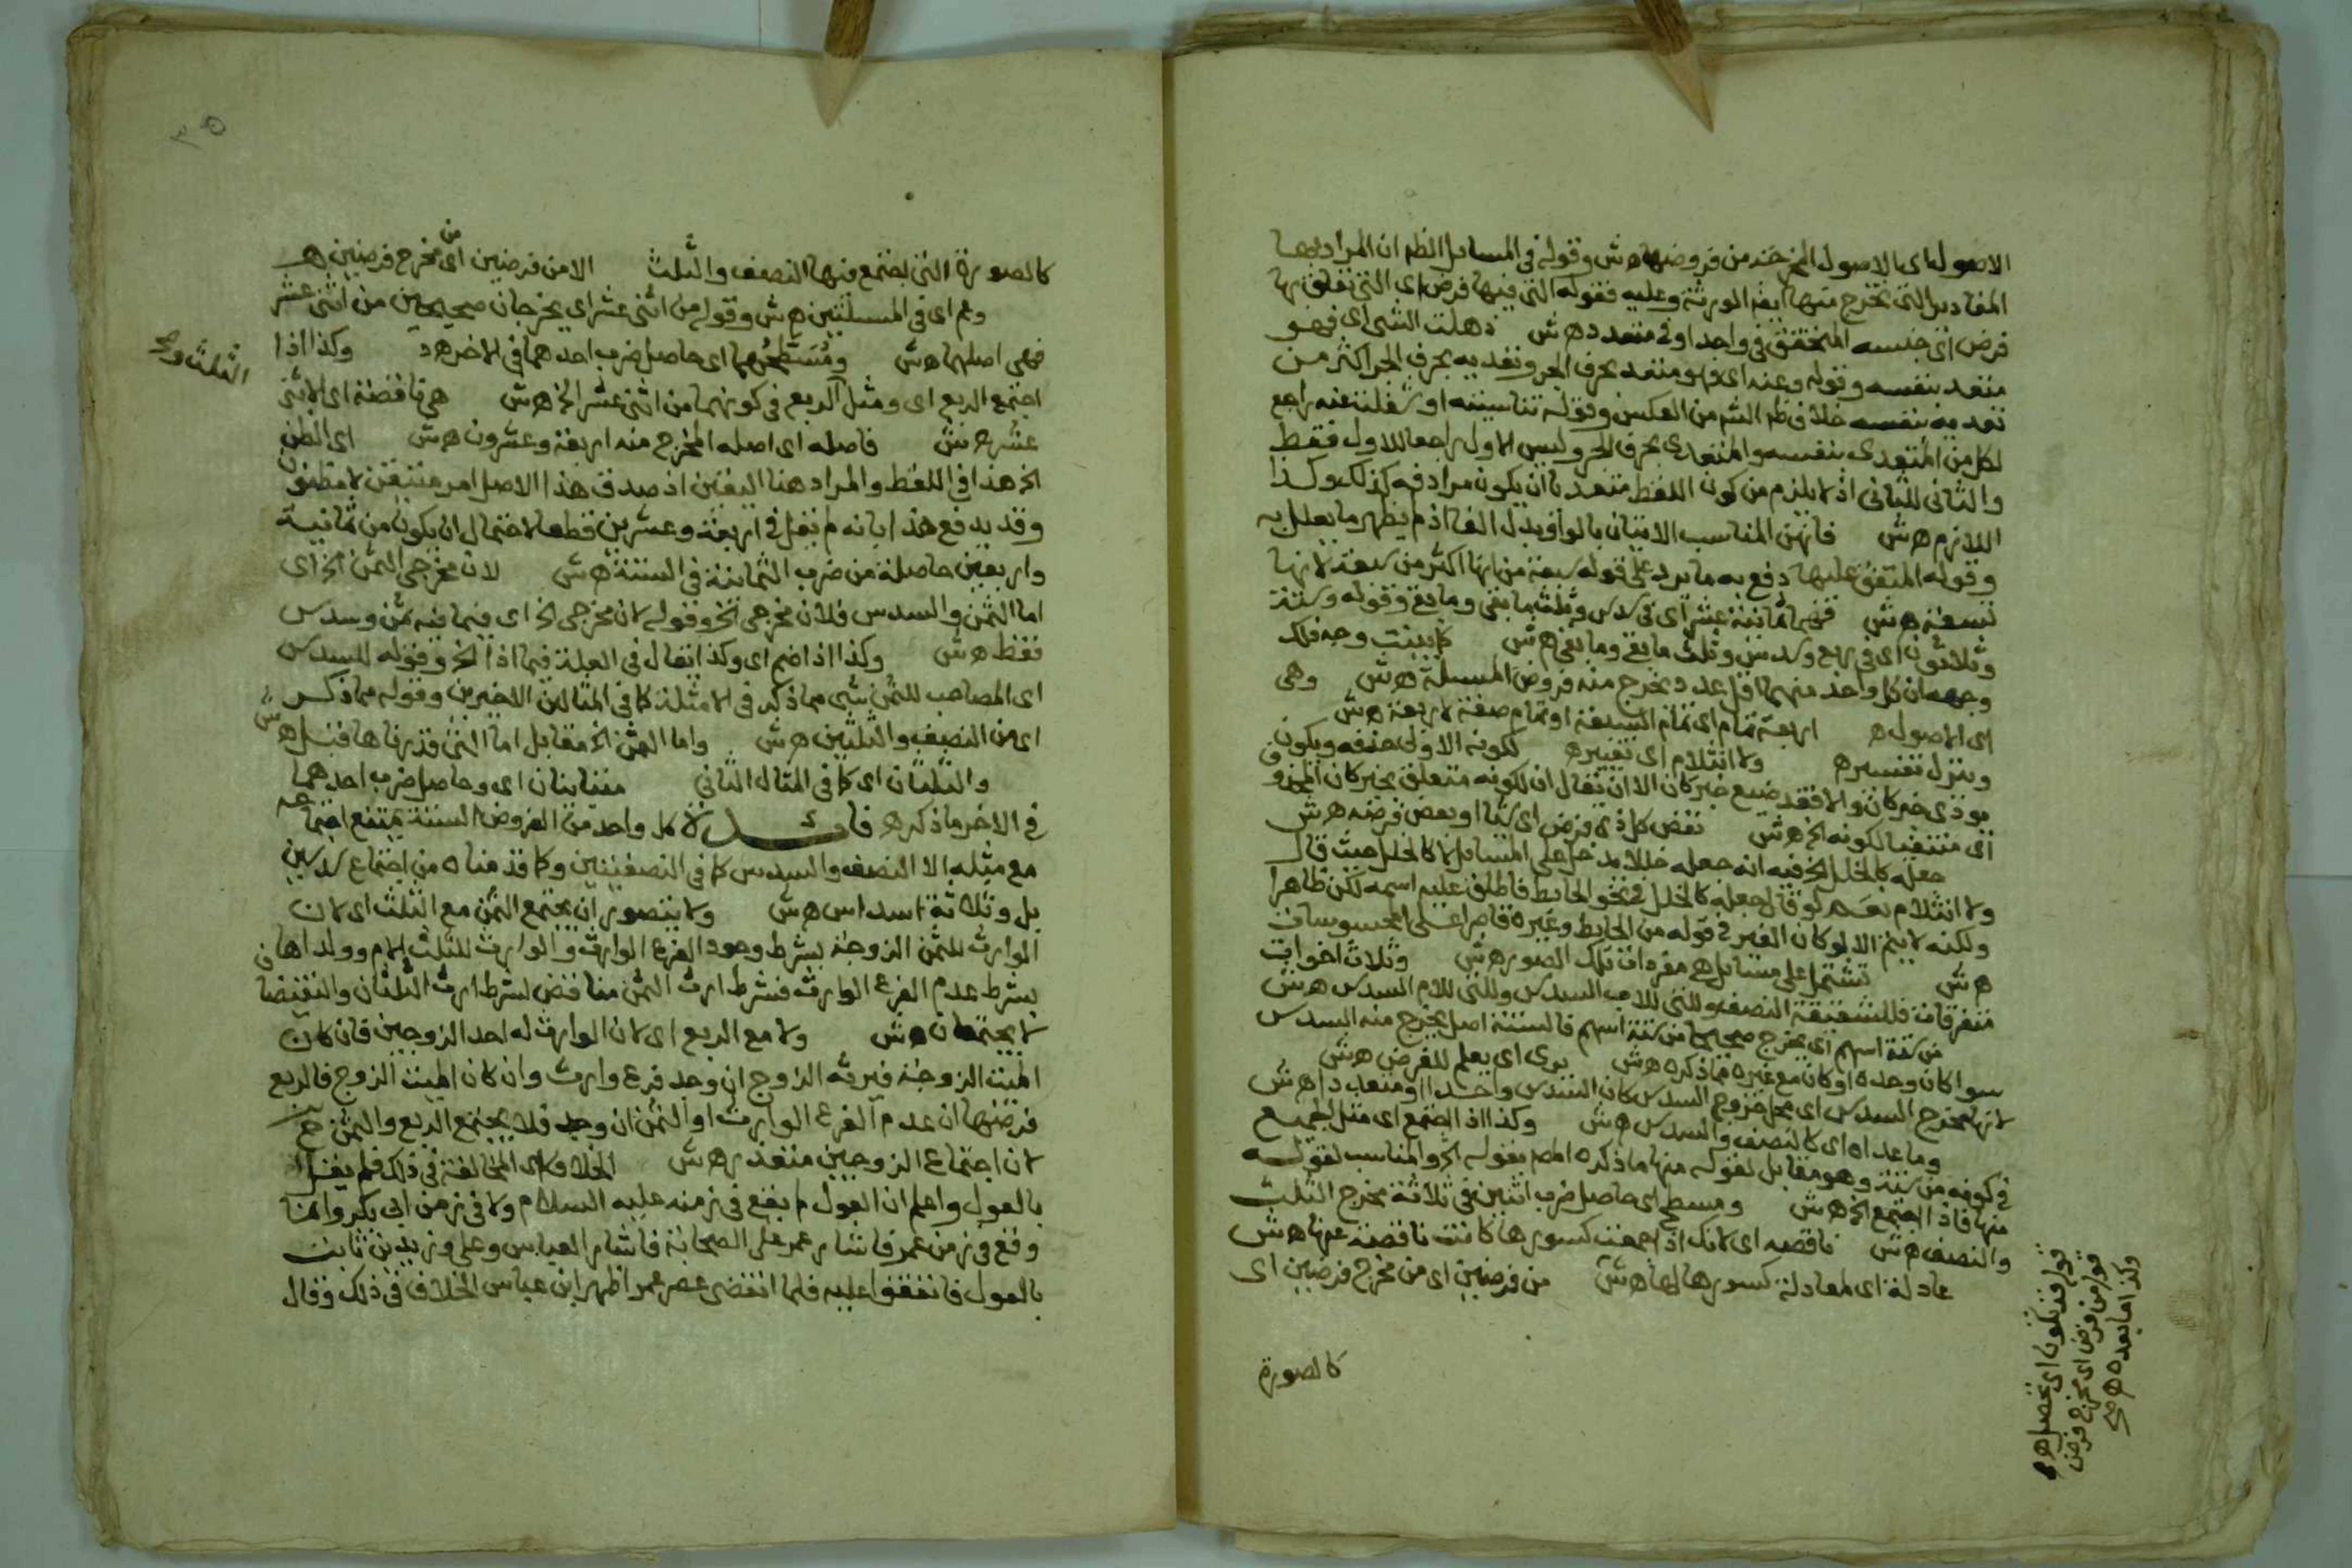 الاصول اى بالاصول المخرجة من فروضها هش وقوله فى المسايل الظم ان المراد بها
المقادير التى تخرج منها الورثة وعليه فقوله التى فيها فرض اى التى تعلق بها
فرض اى جنسه المتحقق فى واحد او فى متعدد هش ذهلت الشى اى فهو
متعد بنفسه وقوله وعنه اى فهو متعد بحرف الجر وتعديه بحرف الجر اكثر من
تعديه بنفسه خلاف ظم الشم من العكس وقوله تناسيته او شغلت عنه راجع
لكل من المتعدى بنفسه والمتعدى بحرف الجر وليس الاول راجعا للاول فقط
والثانى للثانى اذ لا يلزم من كون اللفظ متعديا ان يكون مرادفه كذلك وكذا
اللازم هش فانهن المناسب الاتيان بالواو بدل الفا اذ لم يظهر ما يعلل به
وقوله المتفق عليها دفع به ما يرد على قوله سبعة من انها اكثر من سبعة لانها
تسعة هش ثمانية عشر اى فى سدس وثلث ما بقى وما بقى وقوله وستة
وثلاثون اى فى ربع وسدس وثلث ما بقى وما بقى هش كما بينت وجه ذلك
وجهه ان كل واحد منهما اقل عدد يخرج منه فروض المسيلة هش وهى
اى الاصول ه اربعة تمام اى تمام السبعة او تمام صفة لاربعة هش
وينزل تفسيره ولا انثلام اى تغييره لكونه الاولى حذفه ويكون
موذى خبر كان والا فقد ضيع خبر كان الا ان يقال ان لكونه متعلق بخبر كان المحذوف
اى منتفيا لكونه الخ هش نقص كل ذى فرض اى او بعض فرضه هش
جعله كالخلل الخ فيه انه جعله خللا يدخل على المسايل لا كالخلل حيث قال
ولا انثلام نعم لو قال جعله كالخلل فى نحو الحايط فاطلق عليه اسمه لكن ظاهرا
ولكنه لا يتم الا لو كان الغير فى قوله من الحايط وغيره قاصرا على المحسوسات
هش تشتمل على مسايل هى مفردات تلك الصور هش وثلاث اخوات
متفرقات فللشقيقة النصف وللتى للاب السدس وللتى للام السدس هش
من ستة اسهم اى يخرج صحيحا من ستة اسهم فالستة اصل يخرج منه السدس
سوا كان وحده او كان مع غيره مما ذكره هش يرى اى يعلم للفرض هش
لانها مخرج السدس اى محل خروج السدس كان السدس واحدا او متعددا هش
وما عداه اى كالنصف والسدس هش وكذا اذا اجتمع اى مثل الجميع
فى كونه من ستة وهو مقابل لقوله منها ما ذكره المص بقوله الخ والمناسب لقوله
منها فاذا اجتمع الخ هش ومسطح اى حاصل ضرب اثنين فى ثلاثة مخرج الثلث
والنصف هش ناقصه اى لانك اذا جمعت كسورها كانت ناقصة عنها هش
عادلة اى لمعادلة كسورها لها هش من فرضين اى من مخرج فرضين اى
كالصورة
قوله قد تكون اى تحصل ه
قوله من فرض اى مخرج فرض
وكذا ما بعده ه صح
٣٥
كالصورة التى اجتمع فيها النصف والثلث الا من فرضين اى من مخرج فرضين ه
وهم اى فى المسيلتين هش وقوله من اثنى عشر اى يخرجان صحيحين من اثنى عشر
فهى اصلهما هش ومسطحهما اى حاصل ضرب احدهما فى الاخر هد وكذا اذا
الثلث وصح
اجتمع الربع اى ومثل الربع فى كونهما من اثنى عشر الخ هش هى ناقصة اى الاثنى
عشر هش فاصله اى اصله المخرج منه اربعة وعشرون هش اى الظن
الخ هذا فى اللفظ والمراد هنا اليقين اذ صدق هذا الاصل امر متيقن لا مظنون
وقد يدفع هذا بانه لم يقل فى اربعة وعشرين قطعا لاحتمال ان يكون من ثمانية
واربعين حاصلة من ضرب الثمانية فى الستة هش لان مخرجى الثمن الخ اى
اما الثمن والسدس فلان مخرجى الخ وقوله لان مخرجى الخ اى فيما فيه ثمن وسدس
فقط هش وكذا اذا ضم اى وكذا يقال فى العلة فيما اذا الخ وقوله للسدس
اى المصاحب للثمن شى مما ذكر فى الامثلة كما فى المثالين الاخيرين وقوله مما ذكر
اى من النصف والثلثين هش واما الثمن الخ مقابل اما التى قررناها قبل هش
والثلثان اى كما فى المثال الثانى متباينان اى وحاصل ضرب احدهما
فى الاخر ما ذكره فايدة لا كل واحد من الفروض الستة يمتنع اجتماعه
مع مثله الا النصف والسدس كما فى النصفيتين وكما قدمناه من اجتماع سدسين
بل وثلاثة اسداس هش ولا يتصور ان يجتمع الثمن مع الثلث اى لان
الوارث للثمن الزوجة بشرط وجود الفرع الوارث والوارث للثلث الام وولداها
بشرط عدم الفرع الوارث فشرط ارث الثمن مناقض لشرط ارث الثلثان والنقيضان
لا يجتمعان هش ولا مع الربع اى لان الوارث له احد الزوجين فان كان
الميت الزوجة فيرثه الزوج ان وجد فرع وارث وان كان الميت الزوج فالربع
فرضها ان عدم الفرع الوارث او الثمن ان وجد فلا يجتمع الربع والثمن
لان اجتماع الزوجين متعذر هش الخلاف اى المخالفة فى ذلك فلم يقل
بالعول واعلم ان العول لم يقع فى زمنه عليه السلام ولا فى زمن ابى بكر وانما
وقع فى زمن عمر فاشار عمر على الصحابة فاشار العباس وعلى وزيد بن ثابت
بالعول فاتفقوا عليه فلما انقضى عصر عمر اظهر ابن عباس الخلاف فى ذلك وقال